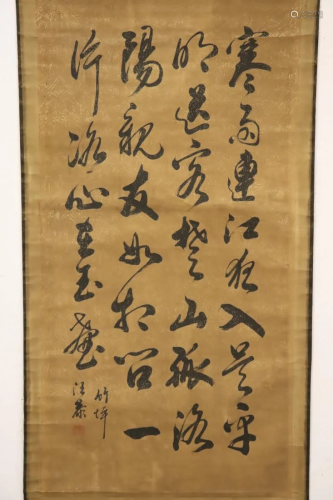 寒雨連江夜入吳平
明送客楚山孤洛
陽親友如相問一
片冰心在玉壺
竹坪
汪恭